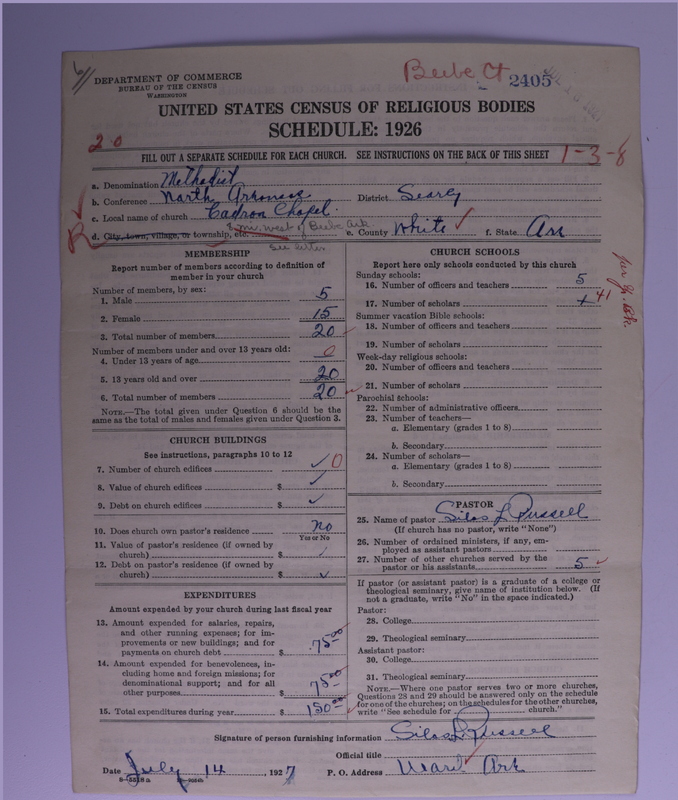 DEPARTMENT OF COMMERCE
BUREAU OF THE CENSUS
WASHINGTON
Beebe Ct 2405
UNITED STATES CENSUS OF RELIGIOUS BODIES
SCHEDULE: 1926
20
FILL OUT A SEPARATE SCHEDULE FOR EACH CHURCH. SEE INSTRUCTIONS ON THE BACK OF THIS SHEET 1-3-8
a. Denomination Methodist
b. Conference North Arkansas District Searcy
c. Local name of church Cadron Chapel
d. City, town, village, or township, etc. west of Beebe Ark e. County White f. State Ark
See letter
R
MEMBERSHIP
Report number of members according to definition of
member in your church
Number of members, by sex:
1. Male 5
2. Female 15
3. Total number of members 20
Number of members under and over 13 years old:
4. Under 13 years of age 0
5. 13 years old and over 20
6. Total number of members 20
NOTE.—The total given under Question 6 should be the
same as the total of males and females given under Question 3.
CHURCH BUILDINGS
See instructions, paragraphs 10 to 12
7. Number of church edifices ✓ 0
8. Value of church edifices $ ✓
9. Debt on church edifices $ ✓
10. Does church own pastor's residence No
Yes or No
11. Value of pastor's residence (if owned by
church) $ ✓
12. Debt on pastor's residence (if owned by
church) $ ✓
EXPENDITURES
Amount expended by your church during last fiscal year
13. Amount expended for salaries, repairs,
and other running expenses; for im-
provements or new buildings; and for
payments on church debt $ 75 00
14. Amount expended for benevolences, in-
cluding home and foreign missions; for
denominational support; and for all
other purposes $ 75 00
15. Total expenditures during year $ 150 00
CHURCH SCHOOLS
Report here only schools conducted by this church
Sunday schools:
16. Number of officers and teachers 5
17. Number of scholars 41
Summer vacation Bible schools:
18. Number of officers and teachers
19. Number of scholars
Week-day religious schools:
20. Number of officers and teachers
21. Number of scholars
Parochial schools:
22. Number of administrative officers
23. Number of teachers—
a. Elementary (grades 1 to 8)
b. Secondary
24. Number of scholars—
a. Elementary (grades 1 to 8)
b. Secondary
PASTOR
25. Name of pastor Silas L Russell
(If church has no pastor, write "None")
26. Number of ordained ministers, if any, em-
ployed as assistant pastors
27. Number of other churches served by the
pastor or his assistants 5
If pastor (or assistant pastor) is a graduate of a college or
theological seminary, give name of institution below. (If
not a graduate, write "No" in the space indicated.)
Pastor:
28. College
29. Theological seminary
Assistant pastor:
30. College
31. Theological seminary
NOTE.—Where one pastor serves two or more churches,
Questions 28 and 29 should be answered only on the schedule
for one of the churches; on the schedules for the other churches,
write "See schedule for church."
Signature of person furnishing information Silas L. Russell
Official title
Date July 14, 1927 P. O. Address Ward Ark